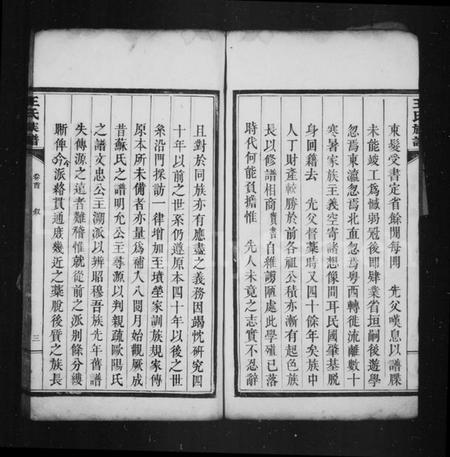 束髮受書定省餘閒每聞　先父嘆息以譜牒
未能竣工爲憾弱冠後卽肄業省垣嗣後遊學
忽焉東瀛忽焉北血忽焉粵西轉徙流離數十
寒暑家族主義空寄諸想像間耳民國肇基脫
身回籍去　先父督葬時又四十餘年矣族中
人丁財產較勝於前各祖公積亦漸有起色族
長以修譜相商實書自維譾陋處此學殖已落
時代何能負擔惟　先人未竟之志實不忍辭
王氏族譜
且對於同族亦有應盡之義務因竭忱研究四
十年以前之世系仍遵原本四十年以後之世
系沿門採訪一律增加王墳塋家訓族規家傳
原本所未備者亦量爲補入八閱月始觀厥成
昔蘇氏之譜明允公主尋源以判親疏歐陽氏
之譜文忠公主溯派以辨昭穆吾族先年舊譜
失傳源之遠者難稽惟就從前之派別條分縷
晰俾分派絡貫通庶幾近之藁脫後質之族長
王氏族譜
卷首　敘
三